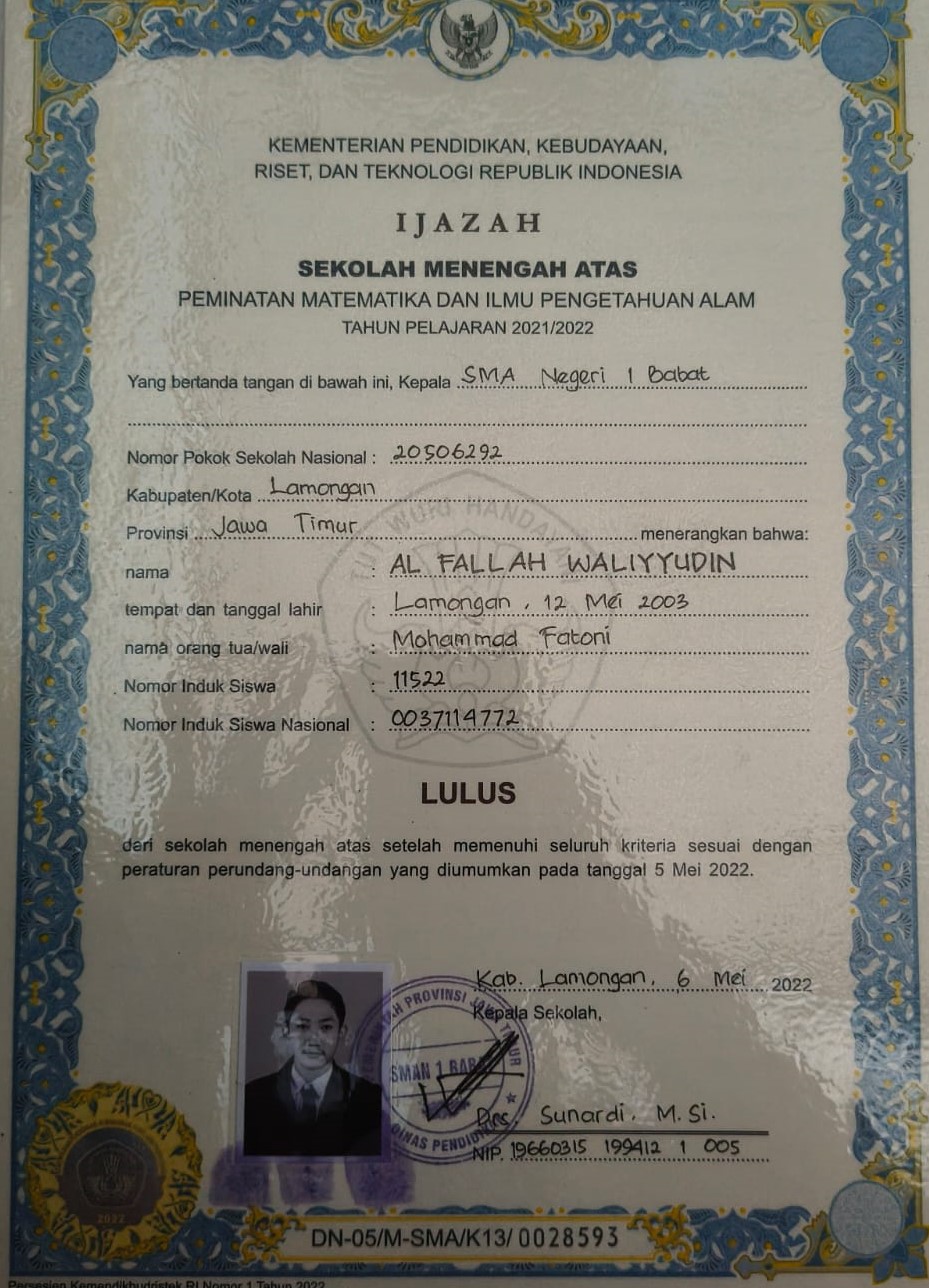 KEMENTERIAN PENDIDIKAN, KEBUDAYAAN,
RISET, DAN TEKNOLOGI REPUBLIK INDONESIA
IJAZAH
SEKOLAH MENENGAH ATAS
PEMINATAN MATEMATIKA DAN ILMU PENGETAHUAN ALAM
TAHUN PELAJARAN 2021/2022
Yang bertanda tangan di bawah ini, Kepala SMA Negeri 1 Babat
Nomor Pokok Sekolah Nasional : 20506292
Kabupaten/Kota Lamongan
Provinsi Jawa Timur menerangkan bahwa:
TUT WURI HANDAYANI
nama : AL FALLAH WALIYYUDIN
tempat dan tanggal lahir : Lamongan, 12 Mei 2003
nama orang tua/wali : Mohammad Fatoni
Nomor Induk Siswa : 11522
Nomor Induk Siswa Nasional : 0037114772
LULUS
dari sekolah menengah atas setelah memenuhi seluruh kriteria sesuai dengan
peraturan perundang-undangan yang diumumkan pada tanggal 5 Mei 2022.
Kab. Lamongan, 6 Mei 2022
Kepala Sekolah,
PROVINSI JAWA TIMUR
SMAN 1 BABAT
DINAS PENDIDIKAN
Drs. Sunardi, M.Si.
NIP. 19660315 199412 1 005
2022
DN-05/M-SMA/K13/0028593
Persesjen Kemendikbudristek RI Nomor 1 Tahun 2022